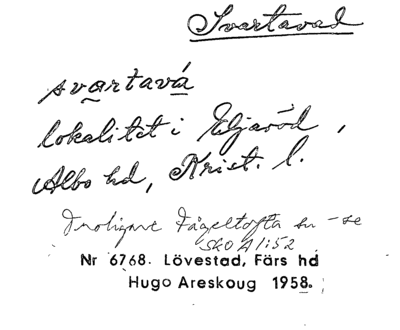 Svartavad
svartavá
lokalitet i Eljaröd,
Albo hd, Krist. l.
Troligare Fågeltofta sn - se
SkO A1:52
Nr 6768. Lövestad, Färs hd
Hugo Areskoug 1958.